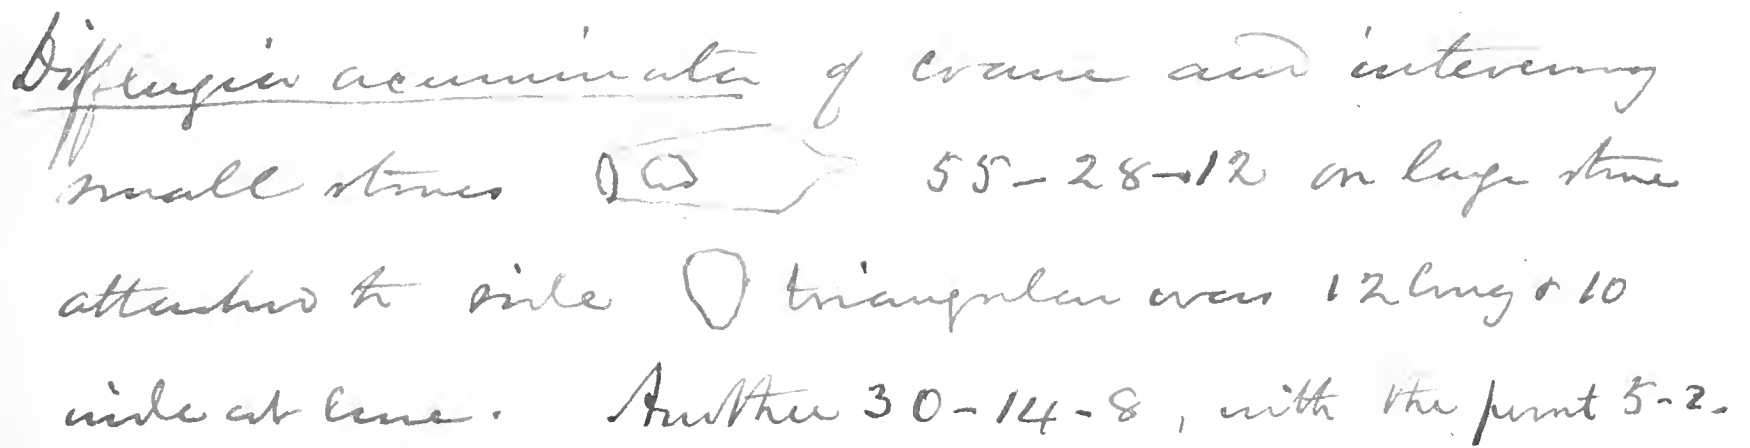 Difflugia acuminata of coarse and intervening
small stones 55-28-12 on large stone
attached to side triangular oval 12 long & 10
wide at base. Another 30-14-8, with the point 5-2.